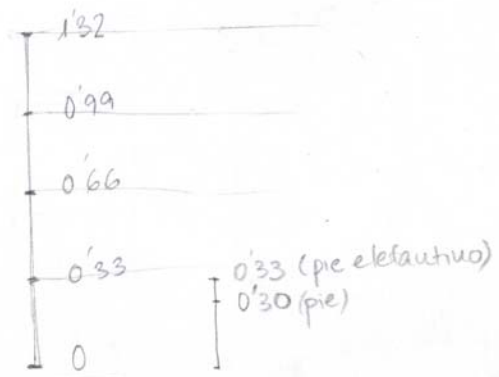 1'32
0'99
0'66
0'33
0'33 (pie elefantino)
0'30 (pie)
0